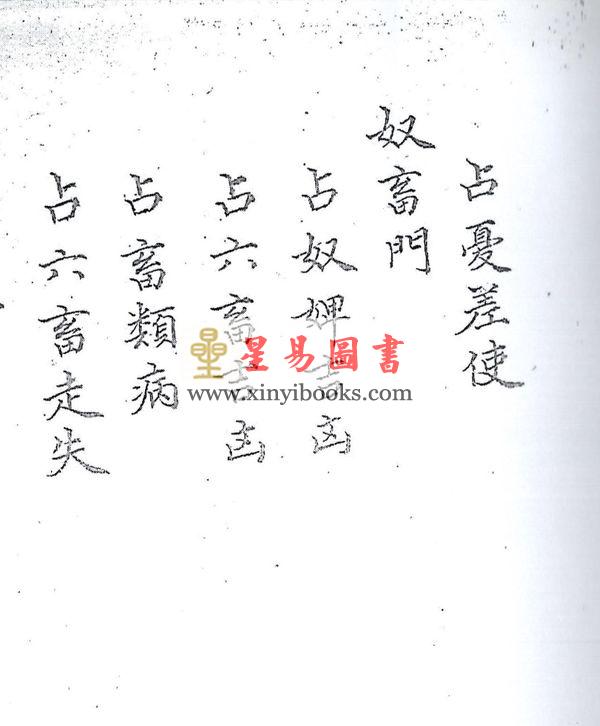 占憂差使
奴畜門
占奴婢吉凶
占六畜吉凶
占畜類病
占六畜走失
星易圖書
www.xinyibooks.com